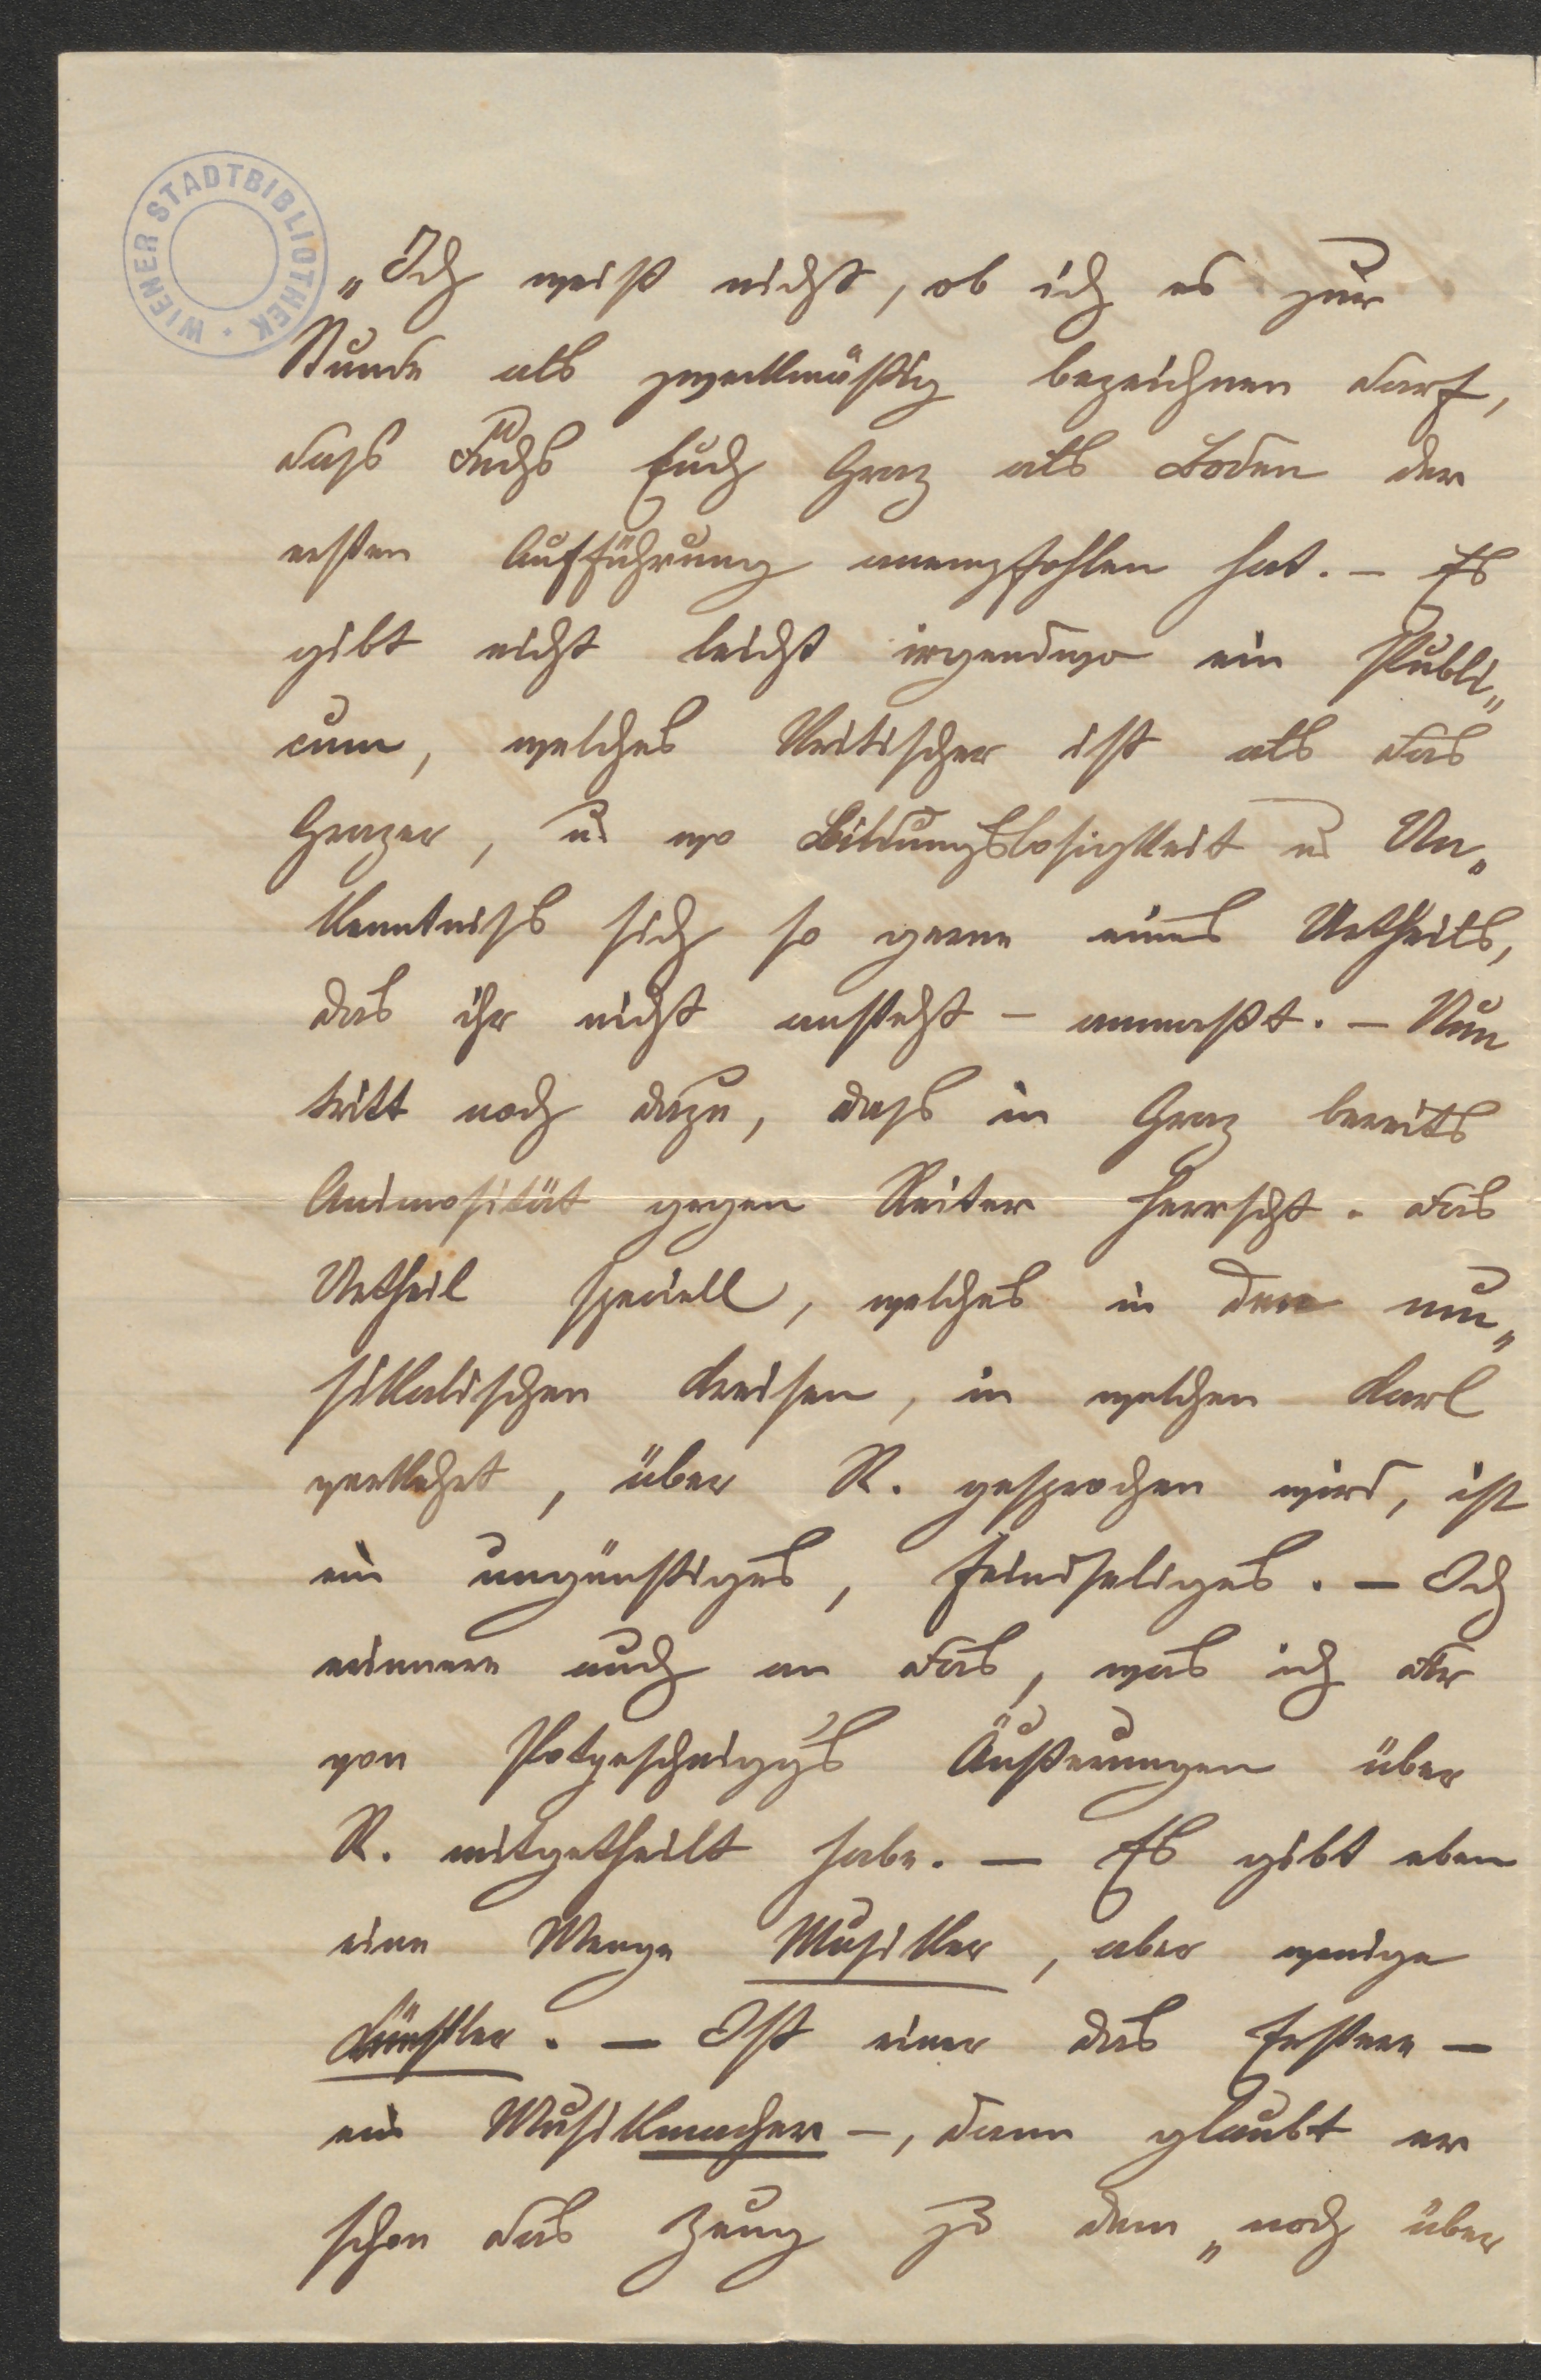 WIENER STADTBIBLIOTHEK
„Ich weiß nicht, ob ich es zur
Stunde als zweckmäßig bezeichnen darf,
dass Fuchs Euch Graz als Boden der
ersten Aufführung anempfohlen hat. – Es
gibt nicht leicht irgendwo ein Publi„
cum, welches kritischer ist als das
Grazer, u wo Bildungslosigkeit u Un„
kenntniss sich so gerne eines Urtheils,
das ihr nicht ansteht – anmaßt. – Nun
tritt noch dazu, dass in Graz bereits
Animosität gegen Reiter herrscht. Das
Urtheil speciell, welches in den mu„
sikalischen Kreisen, in welchen Karl
verkehrt, über R. gesprochen wird, ist
ein ungünstiges, feindseliges. – Ich
erinnere auch an das, was ich Dir
von Potpeschnigg's Äußerungen über
R. mitgetheilt habe. – Es gibt eben
eine Menge Musiker, aber wenige
Künstler. – Ist einer das Erstere –
ein Musikmacher –, dann glaubt er
schon das Zeug zu dem „noch über